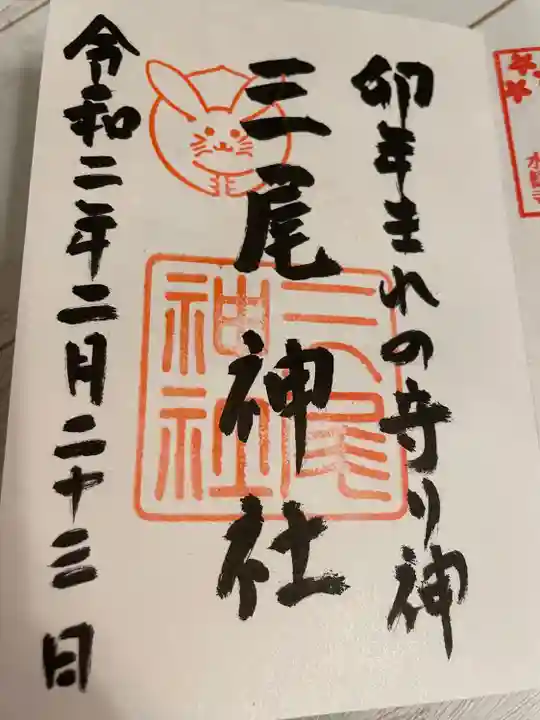 卯年まれの守り神
三尾神社
令和二年二月二十三日
三尾
神社